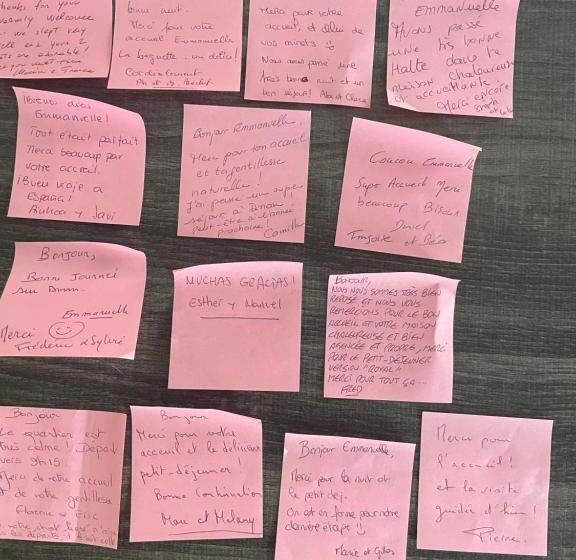 Thanks for your
warmly welcome
we slept very
well and your 2
cats are adorable!
bonne nuit.
Merci pour votre
accueil Emmanuelle
La baguette : un délice!
Cordialement
Ph et
Merci pour votre
accueil, et
vos minets
Nous avons passé une
très bonne nuit et un
bon séjour!
Emmanuelle
Nous avons passé
une très bonne
Halte dans ta
maison chaleureuse
et accueillante.
Merci encore
¡Buenos dias
Emmanuelle!
Tout était parfait
Merci beaucoup par
votre accueil.
¡Buen viaje a
España!
Ainhoa y Javi
Bonjour Emmanuelle,
Merci pour ton accueil
et ta gentillesse
naturelle!
J'ai passé un super
séjour à Dinan.
peut-être à l'année
prochaine!
Camille
Coucou Emmanuelle
Super Accueil Merci
beaucoup Bisous
Daniel
Françoise et Béa
Bonjour,
Bonne Journée
sur Dinan.
Emmanuelle
Merci
Frédéric & Sylvie
MUCHAS GRACIAS!
Esther y Manuel
BONJOUR,
NOUS NOUS SOMMES TRÈS BIEN
REPOSÉ ET NOUS VOUS
REMERCIONS POUR LE BON
ACCUEIL ET VOTRE MAISON
CHALEUREUSE ET BIEN
AGENCÉE ET PROPRE, MERCI
POUR LE PETIT-DEJEUNER
VERSION "ROYAL"
MERCI POUR TOUT ÇA...
FRED
Bonjour
Le quartier est
très calme! Départ
vers 9h15
Merci de votre accueil
et de votre gentillesse
Florence & Eric
Bonjour
Merci pour votre
acceuil et le délicieux
petit-déjeuner!
Bonne Continuation
Marc et Melany
Bonjour Emmanuelle,
Merci pour la nuit et
le petit dej.
On est en forme pour notre
dernière étape !
Marie et
Merci pour
l'accueil!
et la visite
guidée d'hier!
Pierre.